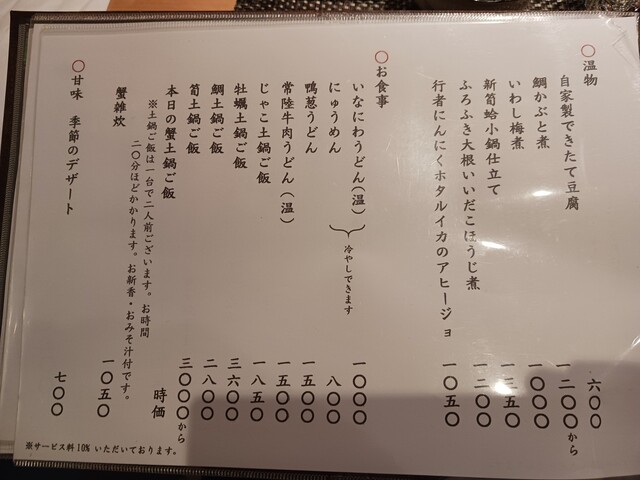 ○温物
自家製できたて豆腐 六〇〇
鯛かぶと煮 一二〇〇から
いわし梅煮 一〇〇〇
新筍蛤小鍋仕立て 一三五〇
ふろふき大根いいだこほうじ煮 一二〇〇
行者にんにくホタルイカのアヒージョ 一〇五〇
○お食事
いなにわうどん(温) 一〇〇〇
にゅうめん 八〇〇
冷やしできます
鴨葱うどん 一五〇〇
常陸牛肉うどん(温) 一五〇〇
じゃこ土鍋ご飯 一八五〇
牡蠣土鍋ご飯 三六〇〇
鯛土鍋ご飯 二八〇〇
筍土鍋ご飯 三〇〇〇から
本日の蟹土鍋ご飯 時価
※土鍋ご飯は一台で二人前ございます。お時間
二〇分ほどかかります。お新香・おみそ汁付です。
蟹雑炊 一〇五〇
○甘味 季節のデザート 七〇〇
※サービス料10%いただいております。